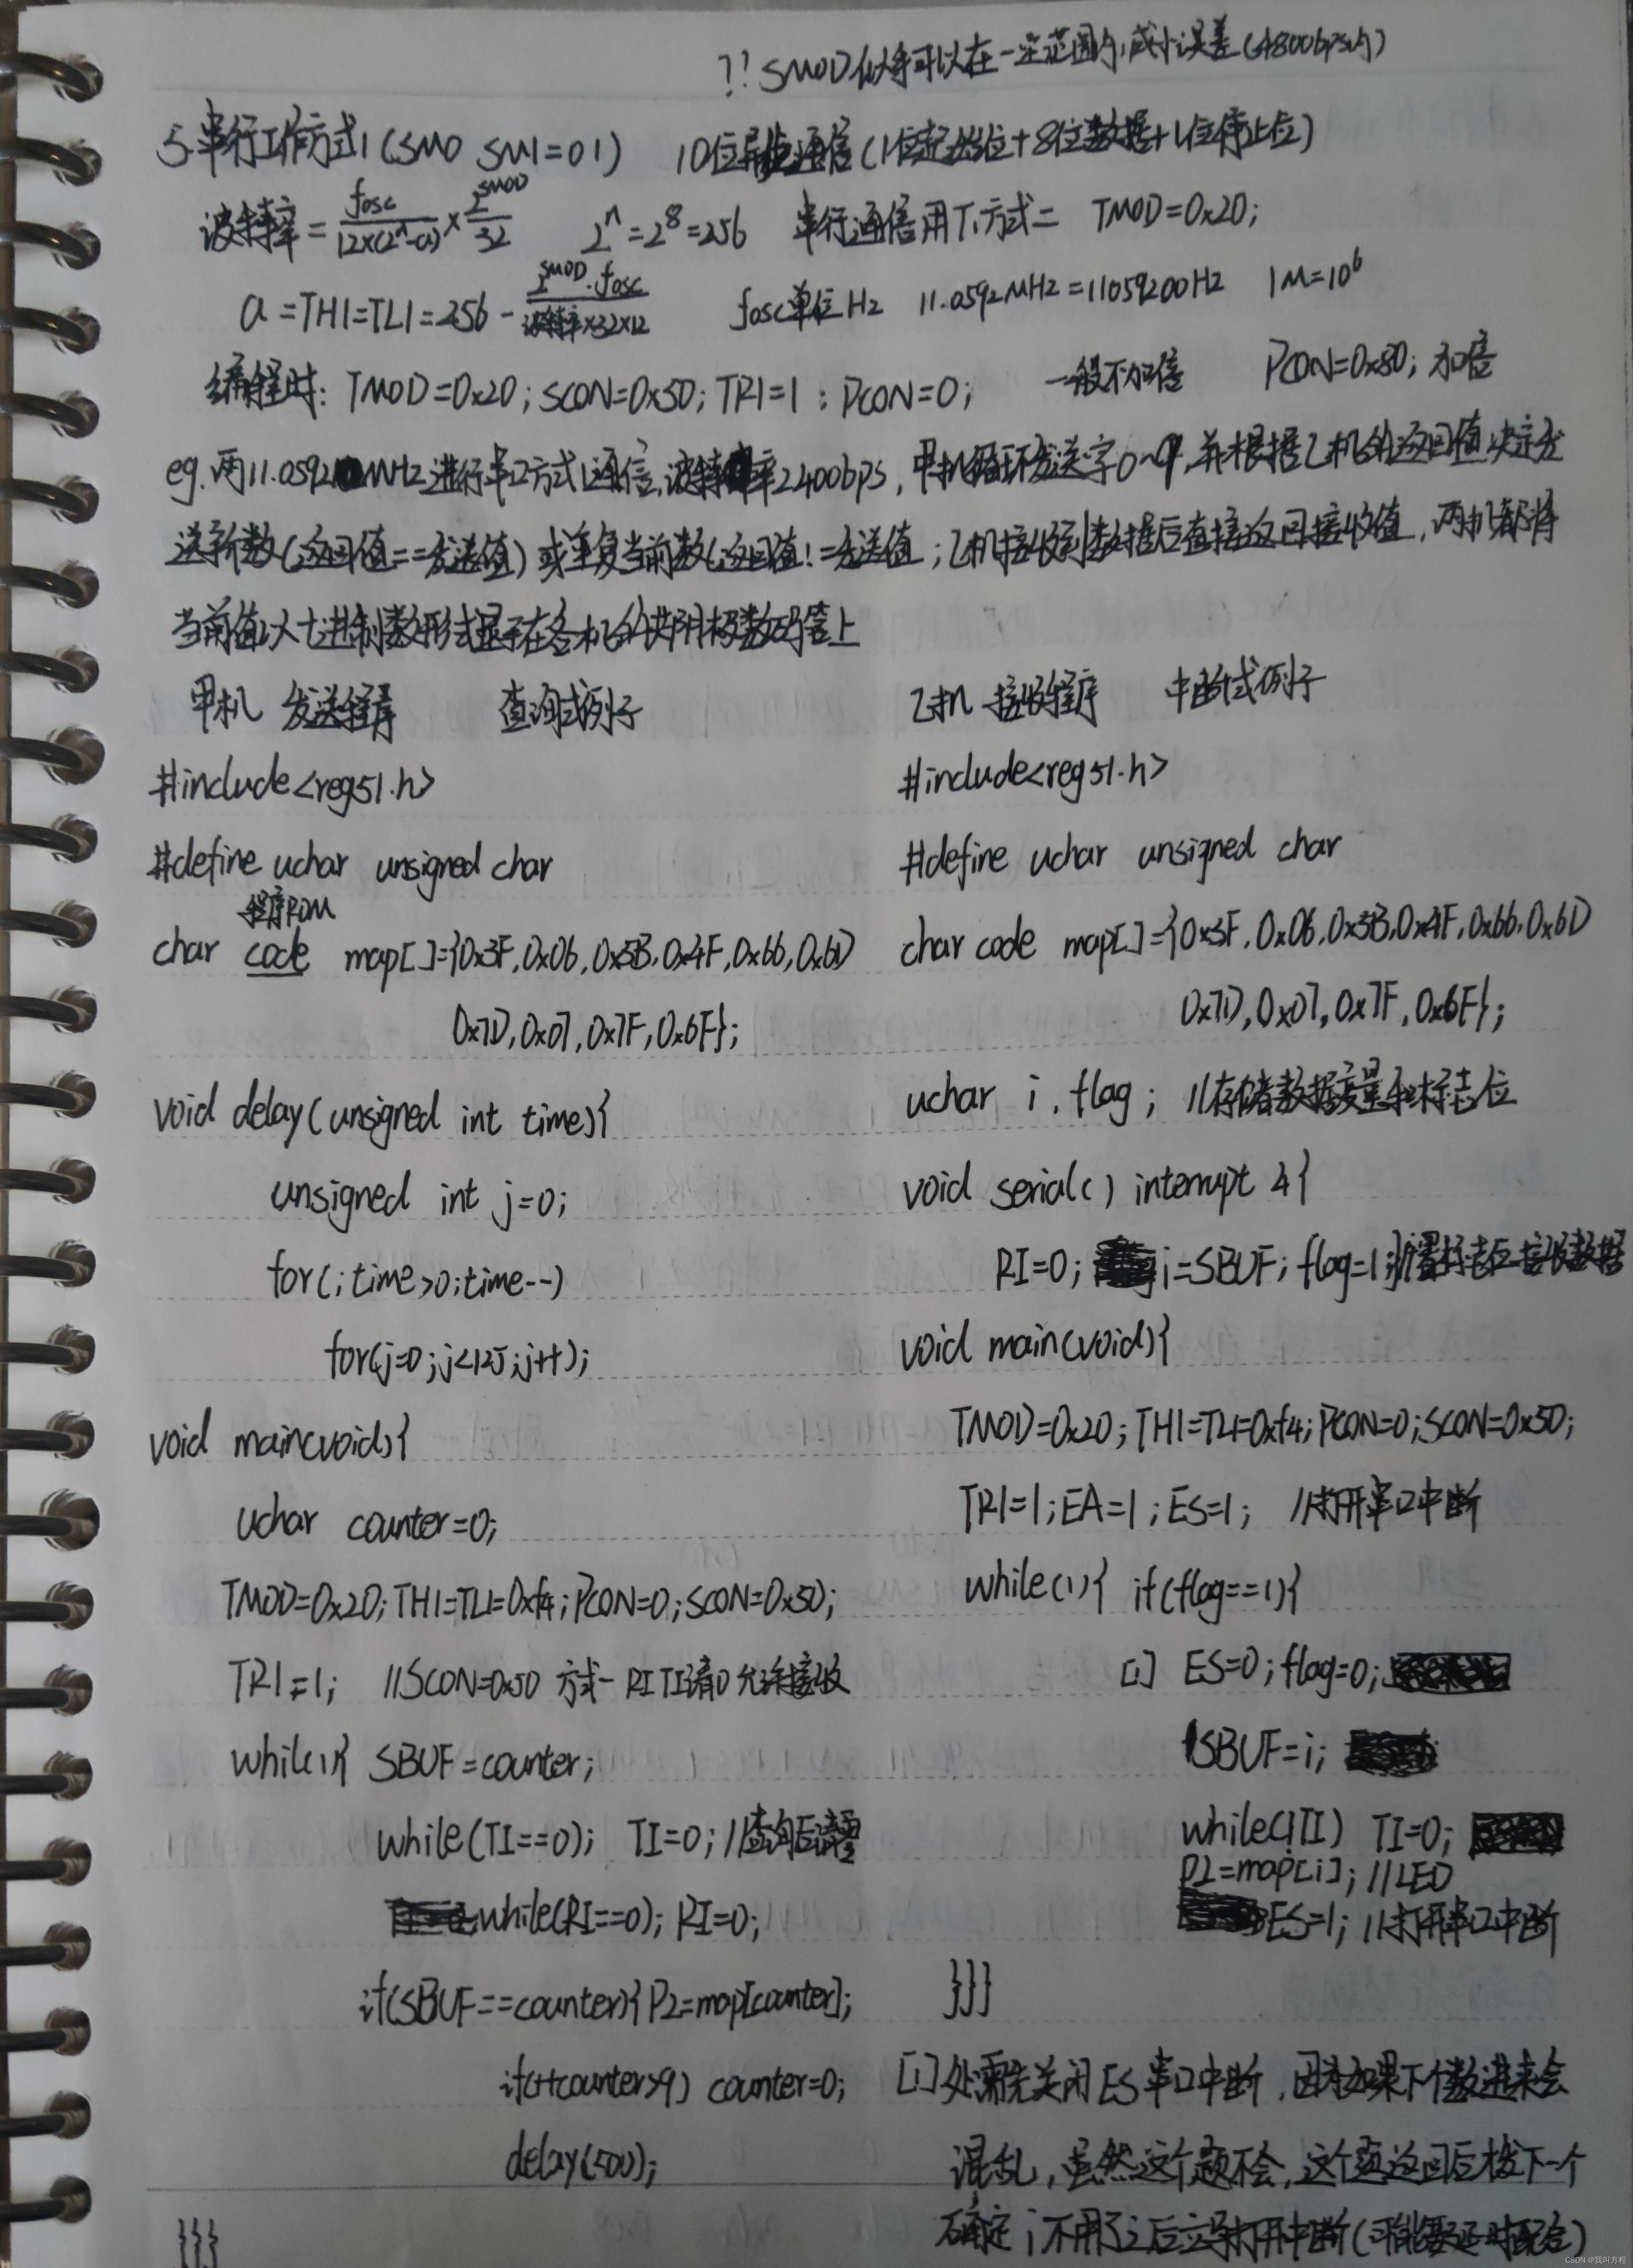 ?! SMOD似乎可以在一定范围内减小误差(4800bps内)
5.串行工作方式1(SM0 SM1=01) 10位异步通信(1位起始位+8位数据+1位停止位)
波特率=fosc/12×(2^n-a)×2^SMOD/32 2^n=2^8=256 串行通信用T1方式二 TMOD=0x20;
a=TH1=TL1=256-2^SMOD·fosc/波特率×32×12 fosc单位Hz 11.0592MHz=11059200Hz 1M=10^6
编程时: TMOD=0x20; SCON=0x50; TR1=1; PCON=0; 一般不加倍 PCON=0x80; 加倍
eg.两11.0592MHz进行串口方式1通信,波特率2400bps,甲机循环发送字0~9,并根据乙机的返回值决定发
送新数(返回值==发送值)或重复当前数(返回值!=发送值;乙机接收到数据后直接返回接收值,两机都将
当前值以十进制数形式显示在各机的共阴极数码管上
甲机 发送程序 查询式例子
#include<reg51.h>
#define uchar unsigned char
程序ROM
char code map[]={0x3F,0x06,0x5B,0x4F,0x66,0x6D
0x7D,0x07,0x7F,0x6F};
void delay(unsigned int time){
unsigned int j=0;
for(;time>0;time--)
for(j=0;j<125;j++);
void main(void){
uchar counter=0;
TMOD=0x20;TH1=TL1=0xf4;PCON=0;SCON=0x50;
TR1=1; //SCON=0x50 方式一 RI TI清0 允许接收
while(1){ SBUF=counter;
while(TI==0); TI=0; //查询后清零
while(RI==0); RI=0;
if(SBUF==counter){P2=map[counter];
if(++counter>9) counter=0;
delay(500);
}}}
乙机 接收程序 中断式例子
#include<reg51.h>
#define uchar unsigned char
char code map[]={0x3F,0x06,0x5B,0x4F,0x66,0x6D
0x7D,0x07,0x7F,0x6F};
uchar i,flag; //存储数据变量和标志位
void serial() interrupt 4{
RI=0; i=SBUF; flag=1;}//置标志后接收数据
void main(void){
TMOD=0x20;TH1=TL1=0xf4;PCON=0;SCON=0x50;
TR1=1;EA=1;ES=1; //打开串口中断
while(1){ if(flag==1){
[1] ES=0;flag=0;
SBUF=i;
while(!TI) TI=0;
P2=map[i]; //LED
ES=1; //打开串口中断
}}}
[1]处需先关闭ES串口中断,因为如果下个数进来会
混乱,虽然这个题不会,这个题返回后发下一个
确定i不用了之后立马打开中断(可能要延时配合)
CSDN @我叫方程